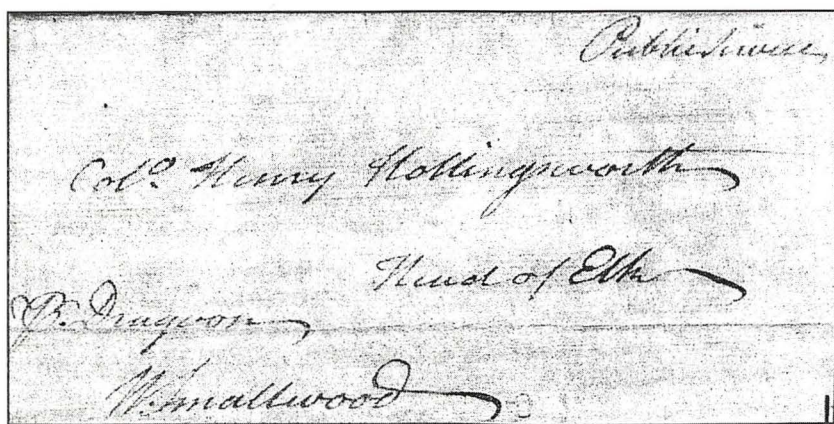 Public Service
Colo. Henry Hollingsworth
Head of Elk
Pr. Dragoon
W. Smallwood